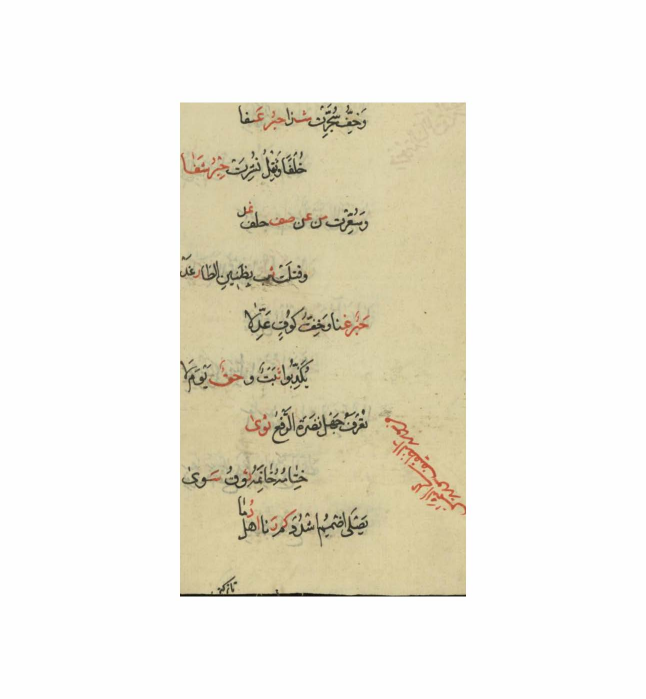 وَخِفُّ سُجِّرَتْ شذا حَبْرٌ غَفا
خُلْفًا وَثِقْلُ نُشِّرَتْ حَبْرٌ شَفَا
وَسُعِّرَت من عن صف خلف غد
وقتلت ثب بظنين الظا رغد
حَبْرٌ غنا وَخِفُّ كوفٍ عَدَّلَا
يُكَذِّبُوا ثَبْتٌ و حَقٌّ يَوْمُ لَا
تُعْرَفُ جَهِّل نَضْرَةَ الرَّفْعُ ثوى
خِتَامُهُ خَاتَمُهُ تُوقُ سَوى
يَصْلَى اضمم اشدُدْ كم رَنا اهل دُمَا